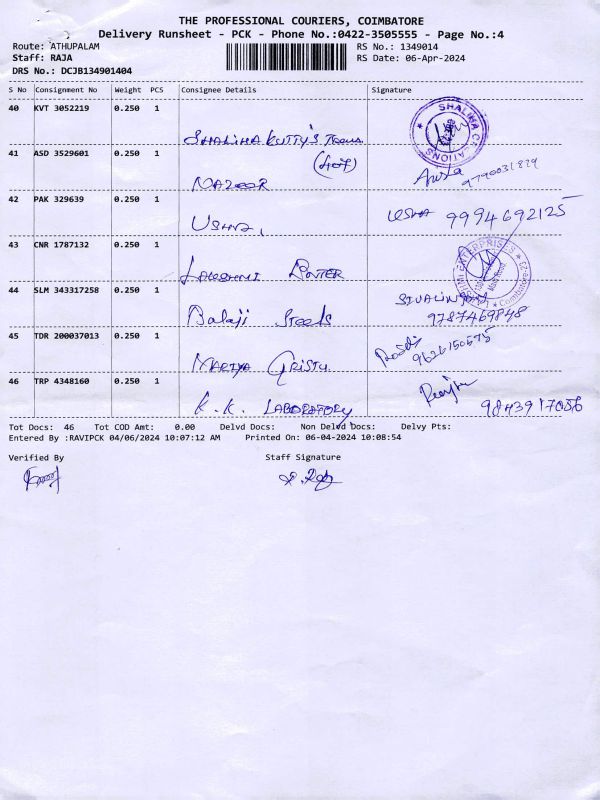 THE PROFESSIONAL COURIERS, COIMBATORE
Delivery Runsheet - PCK - Phone No.:0422-3505555 - Page No.:4
Route: ATHUPALAM RS No.: 1349014
Staff: RAJA RS Date: 06-Apr-2024
DRS No.: DCJB134901404
S No Consignment No Weight PCS Consignee Details Signature
40 KVT 3052219 0.250 1 SHALIHA KUTTY'S SHALIHA CREATIONS
41 ASD 3529601 0.250 1 NAZEER
42 PAK 329639 0.250 1 USHA, USHA 9994692125
43 CNR 1787132 0.250 1 LAKSHMI ENTERPRISES
44 SLM 343317258 0.250 1 Balaji Steels SIVALINGAM
9787469848
45 TDR 200037013 0.250 1 MARIYA 9626150675
46 TRP 4348160 0.250 1 K.K. LABORATORY 9843917056
Tot Docs: 46 Tot COD Amt: 0.00 Delvd Docs: Non Delvd Docs: Delvy Pts:
Entered By :RAVIPCK 04/06/2024 10:07:12 AM Printed On: 06-04-2024 10:08:54
Verified By Staff Signature